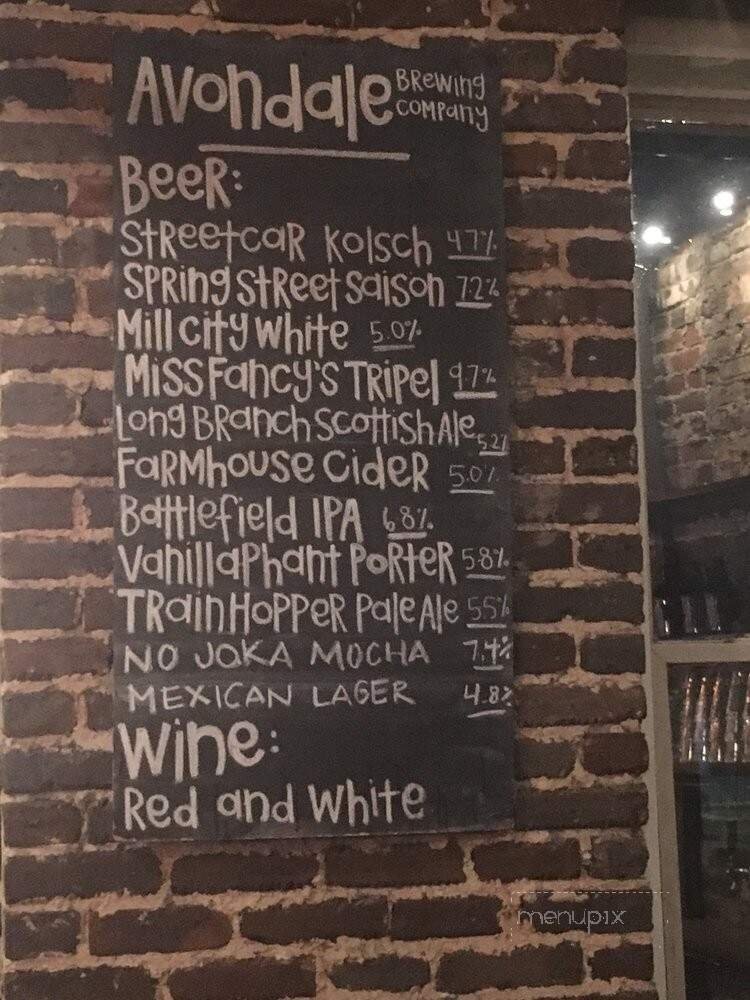 Avondale Brewing Company
Beer:
Streetcar Kolsch 4.7%
Spring Street Saison 7.2%
Mill City White 5.0%
Miss Fancy's Tripel 9.7%
Long Branch Scottish Ale 5.2%
Farmhouse Cider 5.0%
Battlefield IPA 6.8%
Vanillaphant Porter 5.8%
TrainHopper Pale Ale 5.5%
NO JOKA MOCHA 7.4%
MEXICAN LAGER 4.8%
Wine:
Red and White
menupix